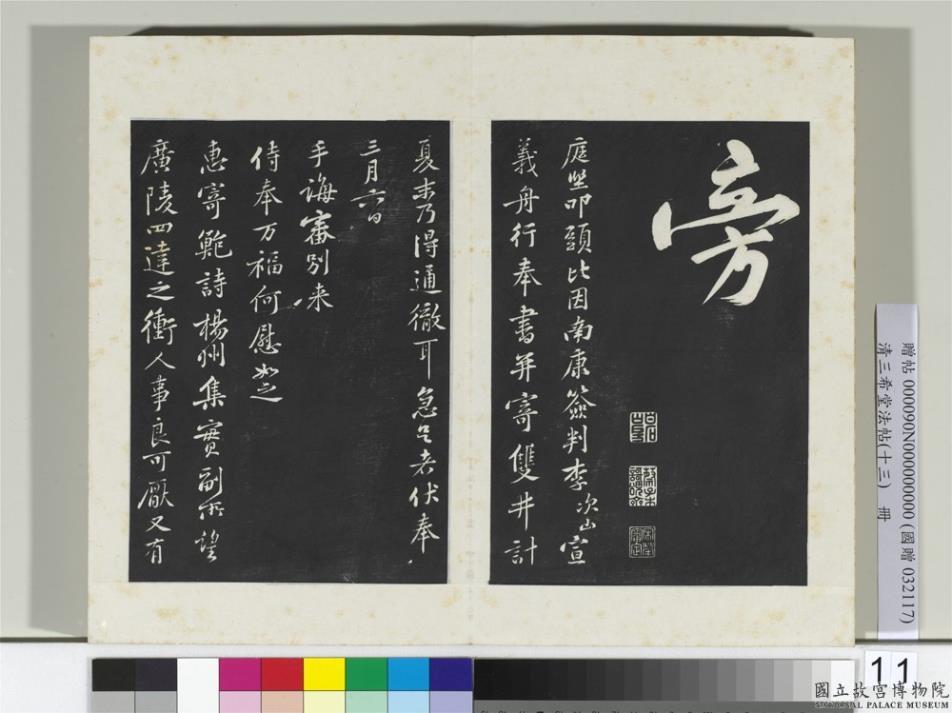 旁
庭堅叩頭比因南康簽判李次山宣
義舟行奉書并寄雙井計
夏末乃得通徹耳急足者伏奉
三月六日
手誨審別来
侍奉万福何慰如之
惠寄鮑詩楊州集實副所望
廣陵四達之衝人事良可厭又有
贈帖 000090N000000000 (國贈 032117)
清三希堂法帖(十三) 冊
11
國立故宮博物院
NATIONAL PALACE MUSEUM